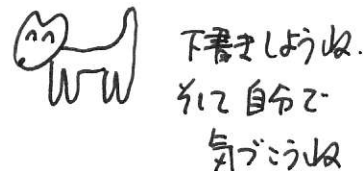 下書きしようね.
そして自分で
気づこうね